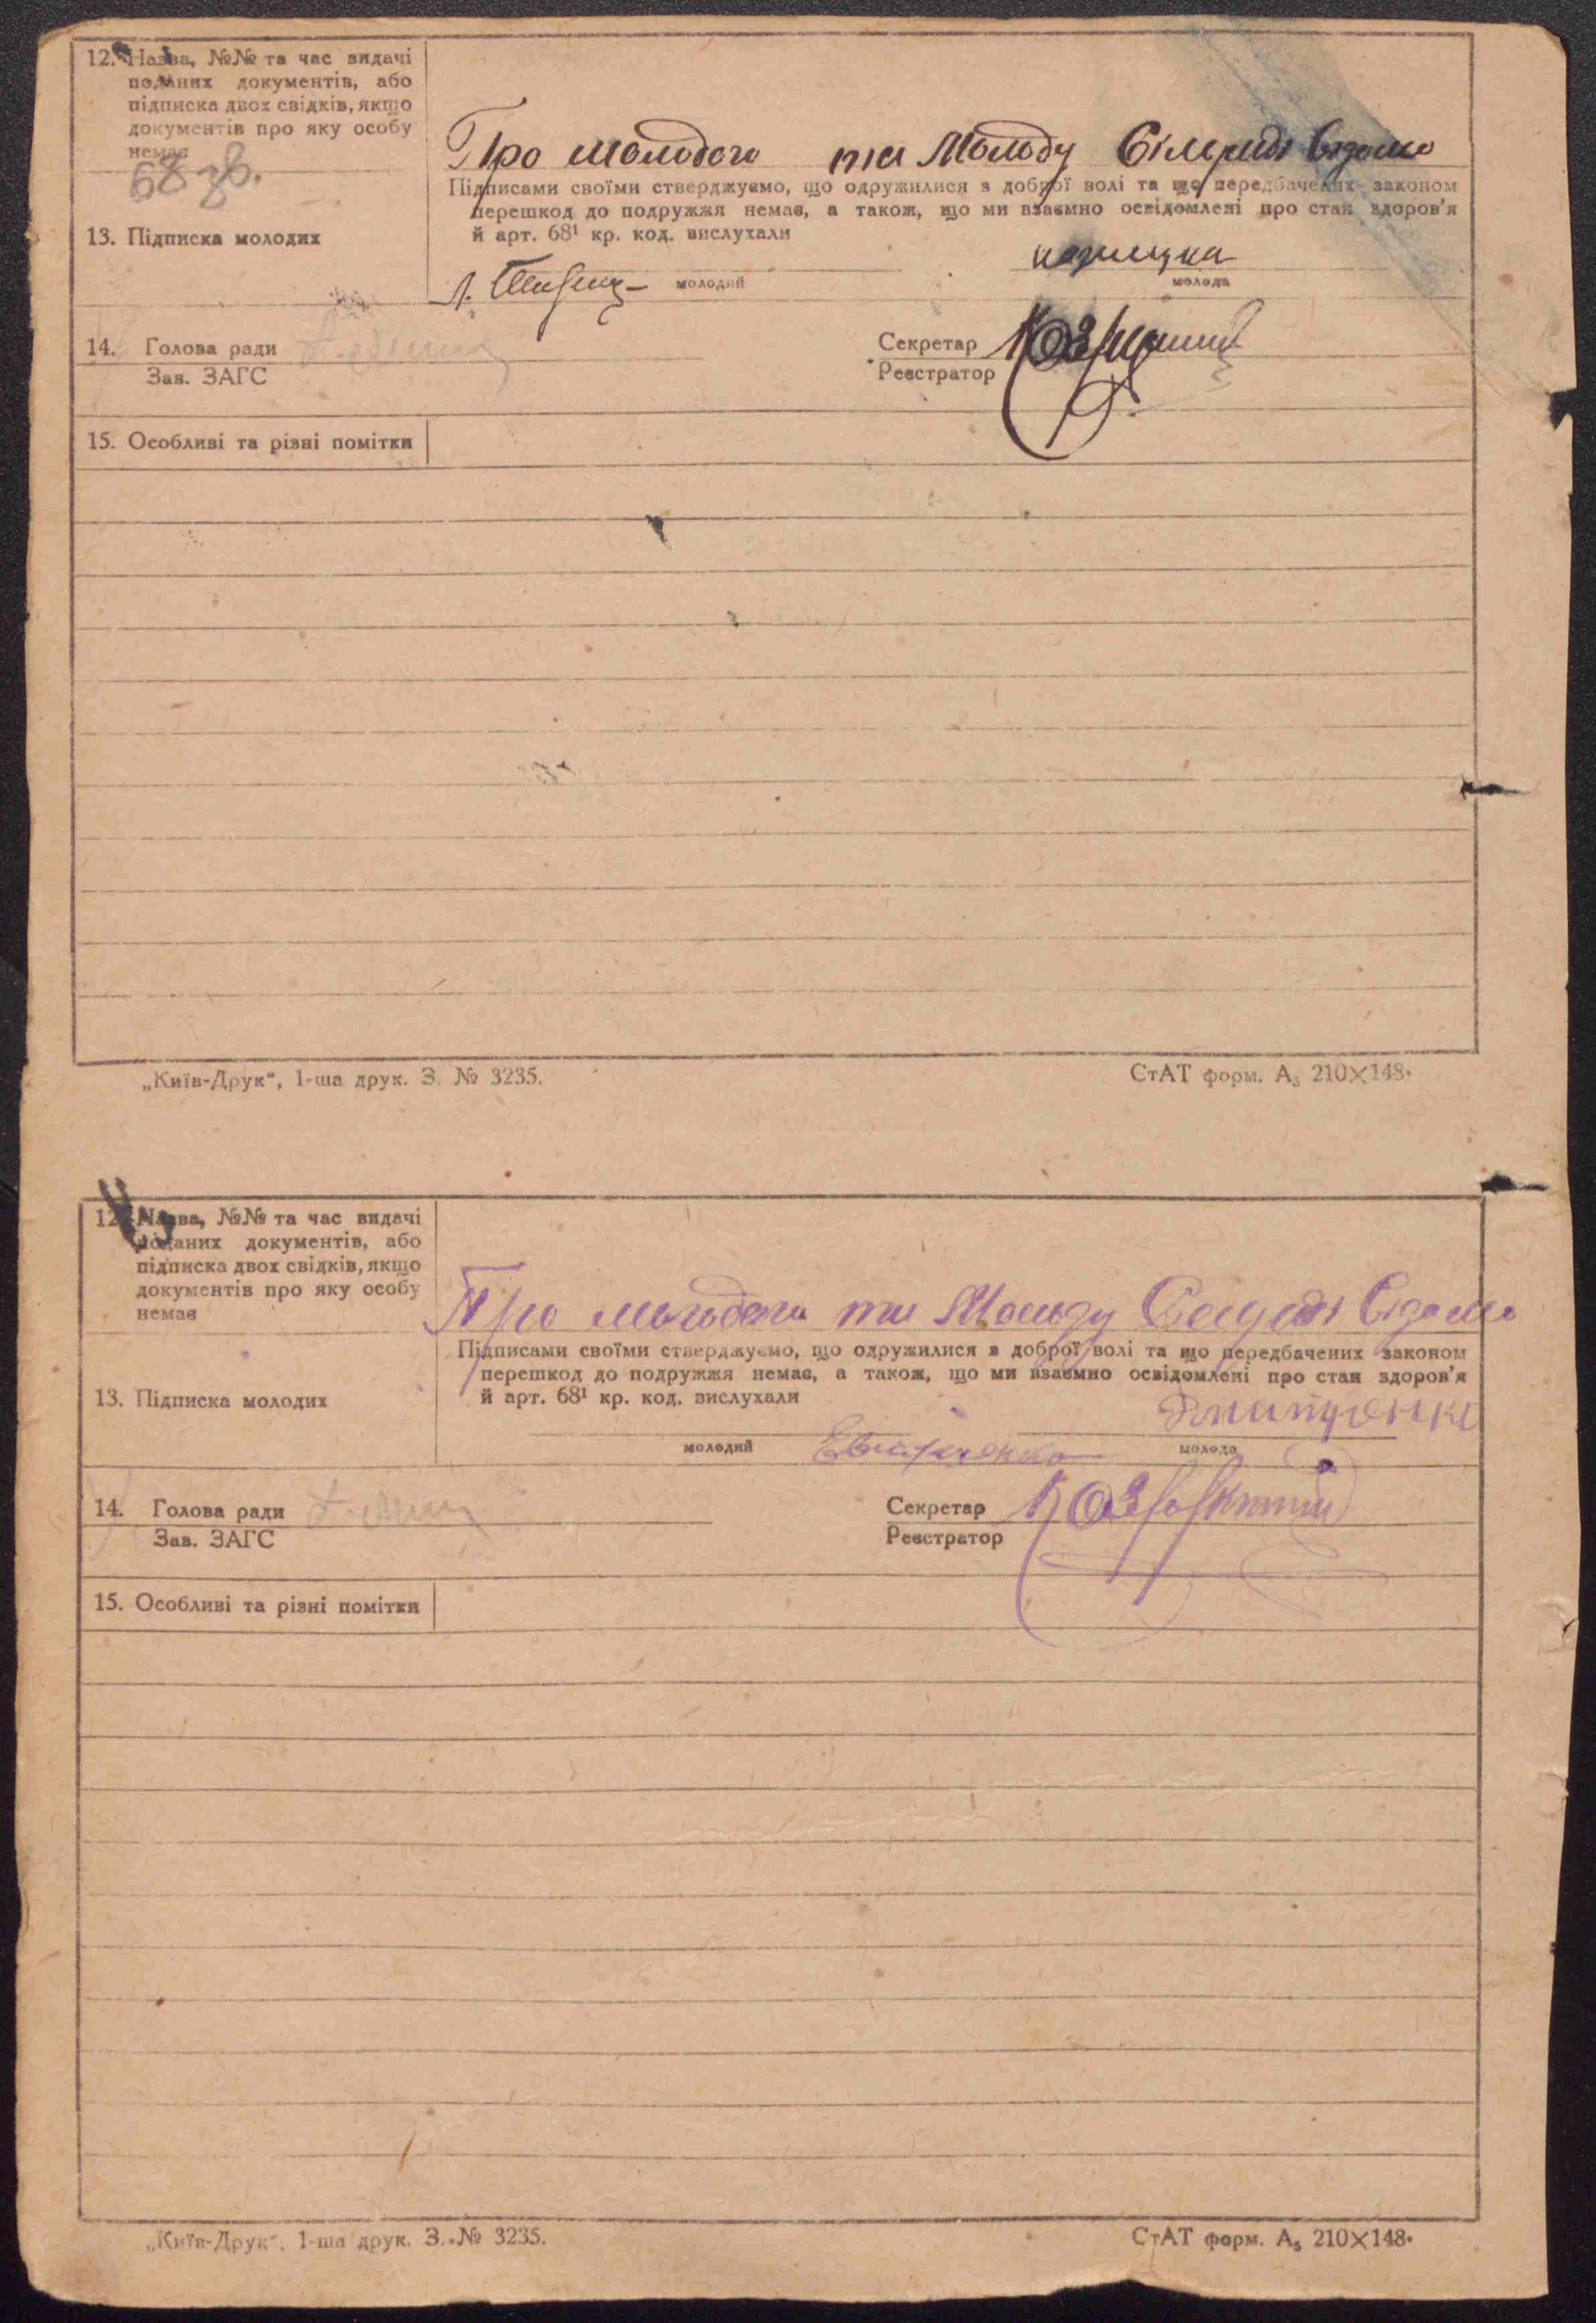 12. Назва, №№ та час видачі
поданих документів, або
підписка двох свідків, якщо
документів про яку особу
немає
68 зв.
Про молодого та Молоду Сілраді Відомо
Підписами своїми стверджуємо, що одружилися з доброї волі та що передбачених законом
перешкод до подружжя немає, а також, що ми взаємно освідомлені про стан здоров'я
й арт. 68¹ кр. код. вислухали
13. Підписка молодих
молодий
молода
14. Голова ради
Зав. ЗАГС
Секретар
Реєстратор
15. Особливі та різні помітки
„Київ-Друк“, 1-ша друк. З. № 3235.
СтАТ форм. А₅ 210×148.
12. Назва, №№ та час видачі
поданих документів, або
підписка двох свідків, якщо
документів про яку особу
немає
Про молодого та Молоду Відомо
Підписами своїми стверджуємо, що одружилися з доброї волі та що передбачених законом
перешкод до подружжя немає, а також, що ми взаємно освідомлені про стан здоров'я
й арт. 68¹ кр. код. вислухали
13. Підписка молодих
молодий
молода
14. Голова ради
Зав. ЗАГС
Секретар
Реєстратор
15. Особливі та різні помітки
„Київ-Друк“, 1-ша друк. З. № 3235.
СтАТ форм. А₅ 210×148.